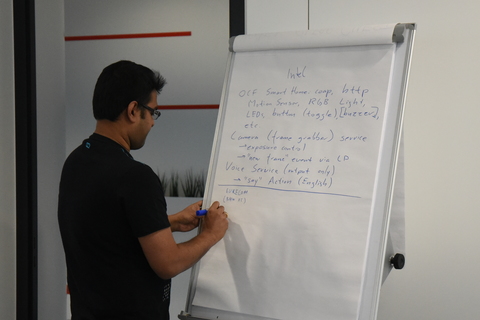 Intel
OCF Smart Home comp, http
Motion Sensor, RGB Light,
LEDs, button (toggle), [buzzer],
etc.
Camera (frame grabber) service
→ exposure control
→ "new frame" event via LD
Voice Service (output only)
→ "say" Action (English)